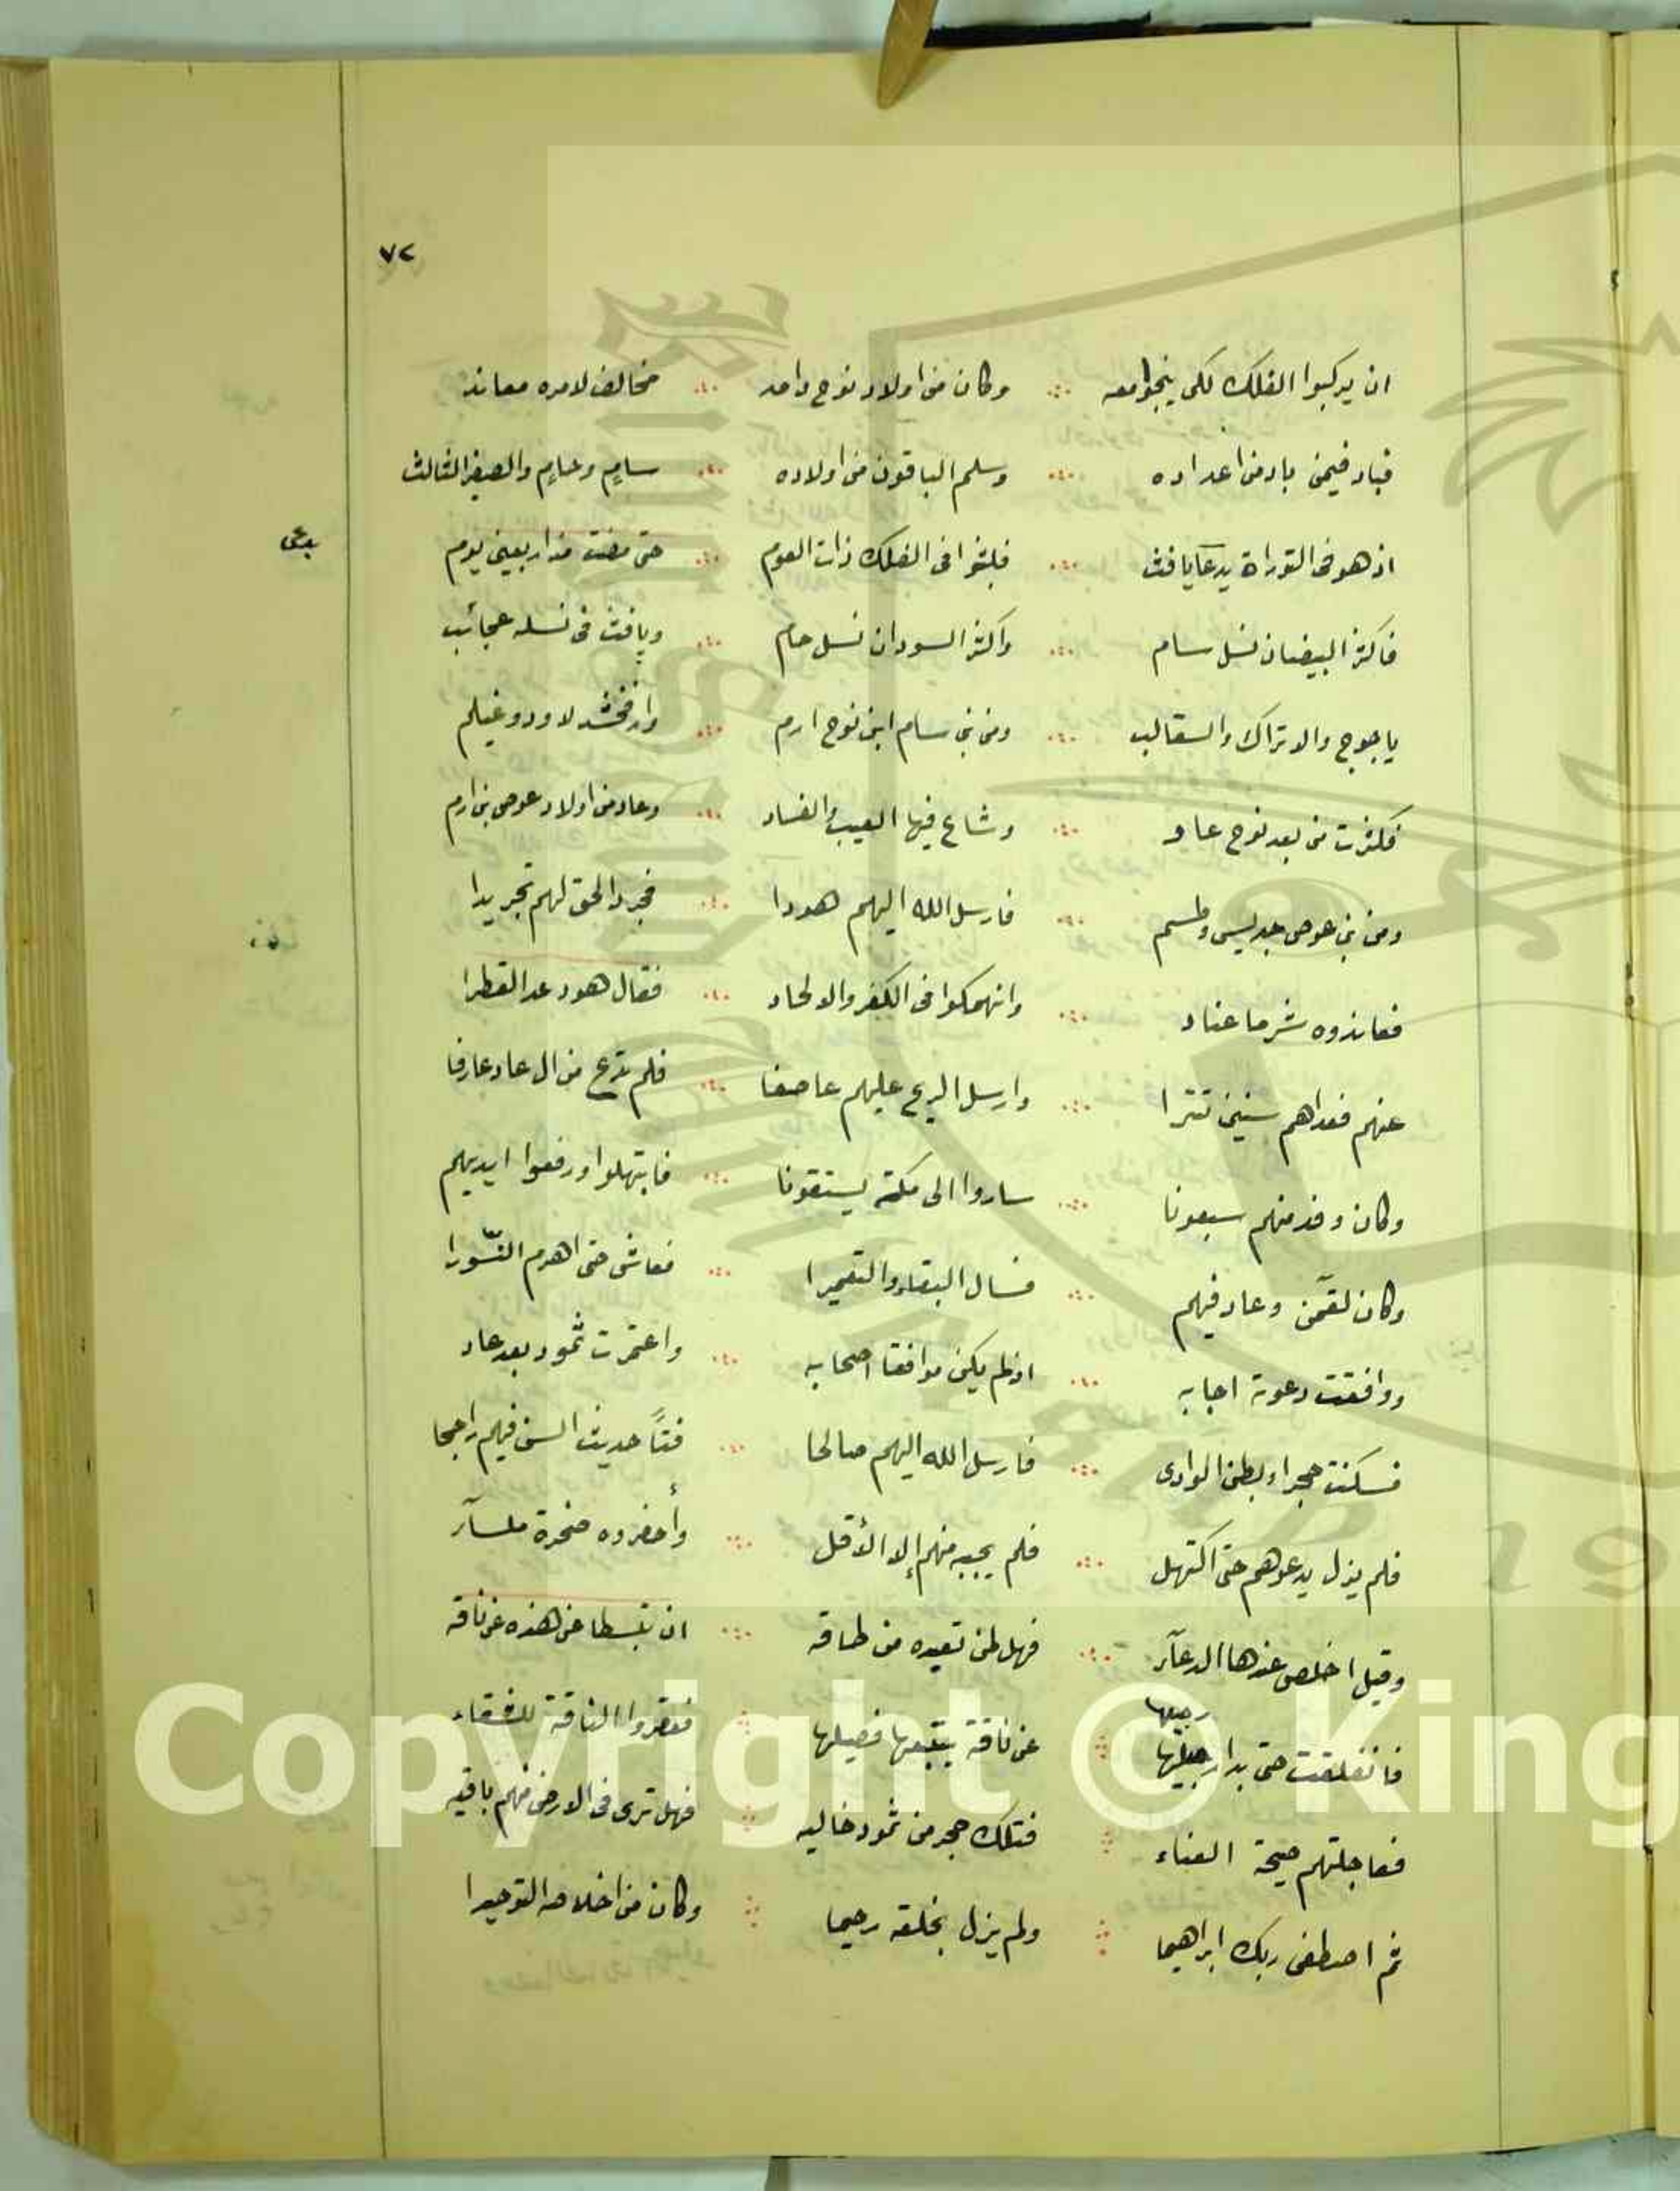 ٧٢
ان يركبوا الفلك لكى ينجوا معه وكان من اولاد نوح واحد مخالف لامره معاند
فباد فيمن باد من اعداده وسلم الباقون من اولاده سامٍ وحامٍ والصغير الثالث
اذ هو فى التوراة يدعا يافث فلبثوا فى الفلك ذات العوم حتى مضت مذ اربعين يوم
فاكثر البيضان نسل سام واكثر السودان نسل حام ويافث فى نسله عجائب
ياجوج والاتراك والسقالب ومن بنى سام ابن نوح ارم وارفخشد لاود وغيلم
فكثرت من بعد نوح عاد وشاع فيها العيب والفساد وعاد من اولاد عوص بن ارم
ومن بنى عوص جديس وطسم فارسل الله اليهم هودا فجرد الحق لهم تجريدا
فعاندوه شر ما عناد وانهمكوا فى الكفر والالحاد فقال هود عد القطرا
عنهم فعداهم سنين تترا وارسل الريح عليهم عاصفا فلم تدع من ال عاد عارفا
وكان وفد منهم سبعونا ساروا الى مكة يستقونا فابتهلوا ورفعوا ايديهم
وكان لقمن وعاد فيهم فسال البقاء والتعميرا فعاش حتى اهرم النسورا
ووافقت دعوة اجابه اذ لم يكن موافقا اصحابه واعتمرت ثمود بعد عاد
فسكنت حجرا وبطن الوادى فارسل الله اليهم صالحا فتاً حديث السن فيهم راجحا
فلم يزل يدعوهم حتى اكتهل فلم يجبه منهم إلا الأقل وأحضروه صخرة ملسآء
وقيل اخلص عندها الدعآء فهل لمن تعبده من طاقه ان تبسطا عن هذه عن ناقه
فانفلقت حتى بدا رجيلها عن ناقة يتبعها فصيلها فعقروا الناقة للشقاء
فعاجلتهم صيحة الفناء فتلك حجر من ثمود خاليه فهل ترى فى الارض منهم باقيه
ثم اصطفى ربك ابراهيما ولم يزل بخلقه رحيما وكان من اخلاصه التوحيدا
Copyright © King